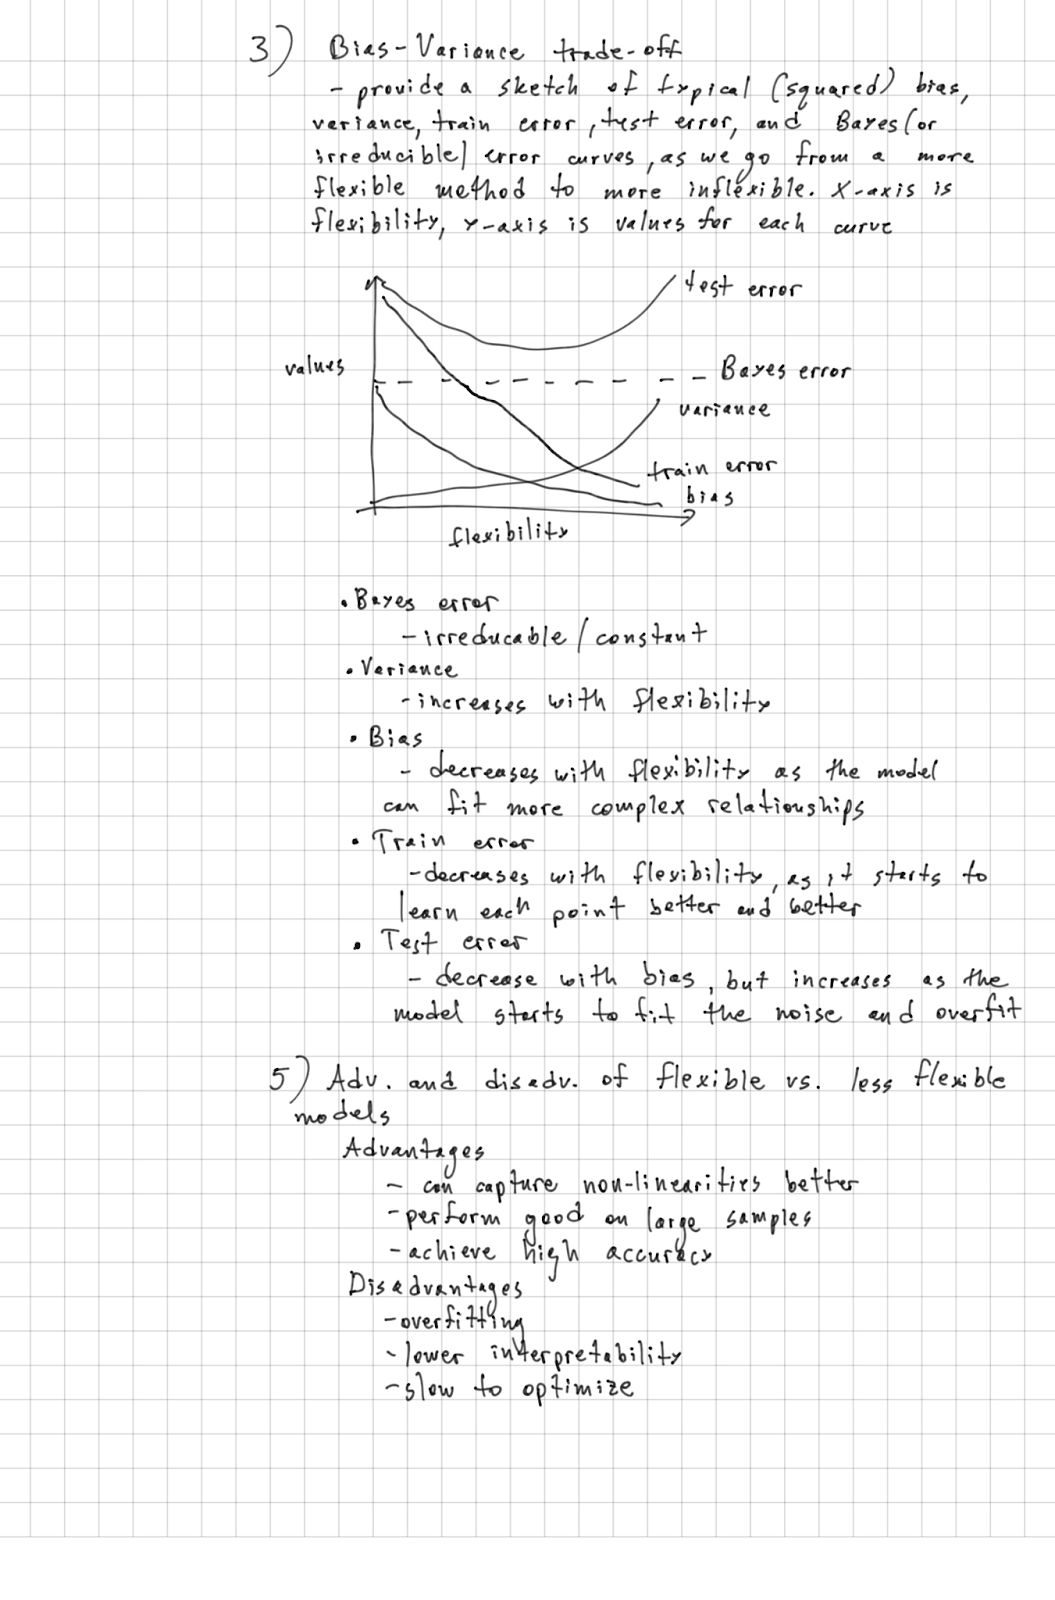 3) Bias-Variance trade-off
- provide a sketch of typical (squared) bias,
variance, train error, test error, and Bayes (or
irreducible) error curves, as we go from a more
flexible method to more inflexible. X-axis is
flexibility, y-axis is values for each curve
test error
values
Bayes error
variance
train error
bias
flexibility
• Bayes error
- irreducable / constant
• Variance
- increases with flexibility
• Bias
- decreases with flexibility as the model
can fit more complex relationships
• Train error
- decreases with flexibility, as it starts to
learn each point better and better
• Test error
- decrease with bias, but increases as the
model starts to fit the noise and overfit
5) Adv. and disadv. of flexible vs. less flexible
models
Advantages
- can capture non-linearities better
- perform good on large samples
- achieve high accuracy
Disadvantages
- overfitting
- lower interpretability
- slow to optimize